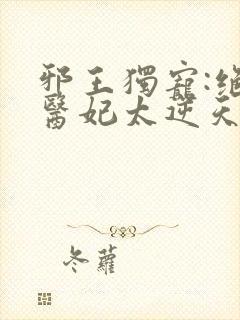 邪王獨寵:絕
醫妃太逆天
冬蘿